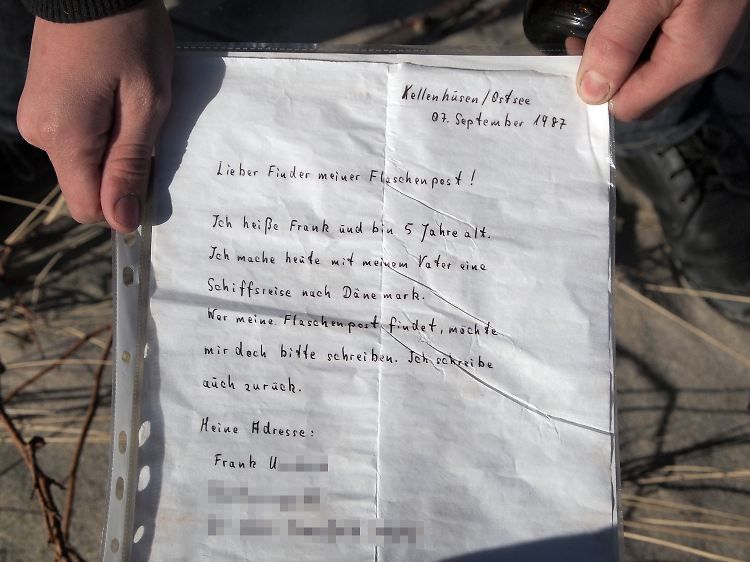 Kellenhüsen/Ostsee
07. September 1987
Lieber Finder meiner Flaschenpost!
Ich heiße Frank ünd bin 5 Jahre alt.
Ich mache heüte mit meinem Vater eine
Schiffsreise nach Dänemark.
Wer meine Flaschenpost findet, möchte
mir doch bitte schreiben. Ich schreibe
aüch zürück.
Meine Adresse:
Frank U